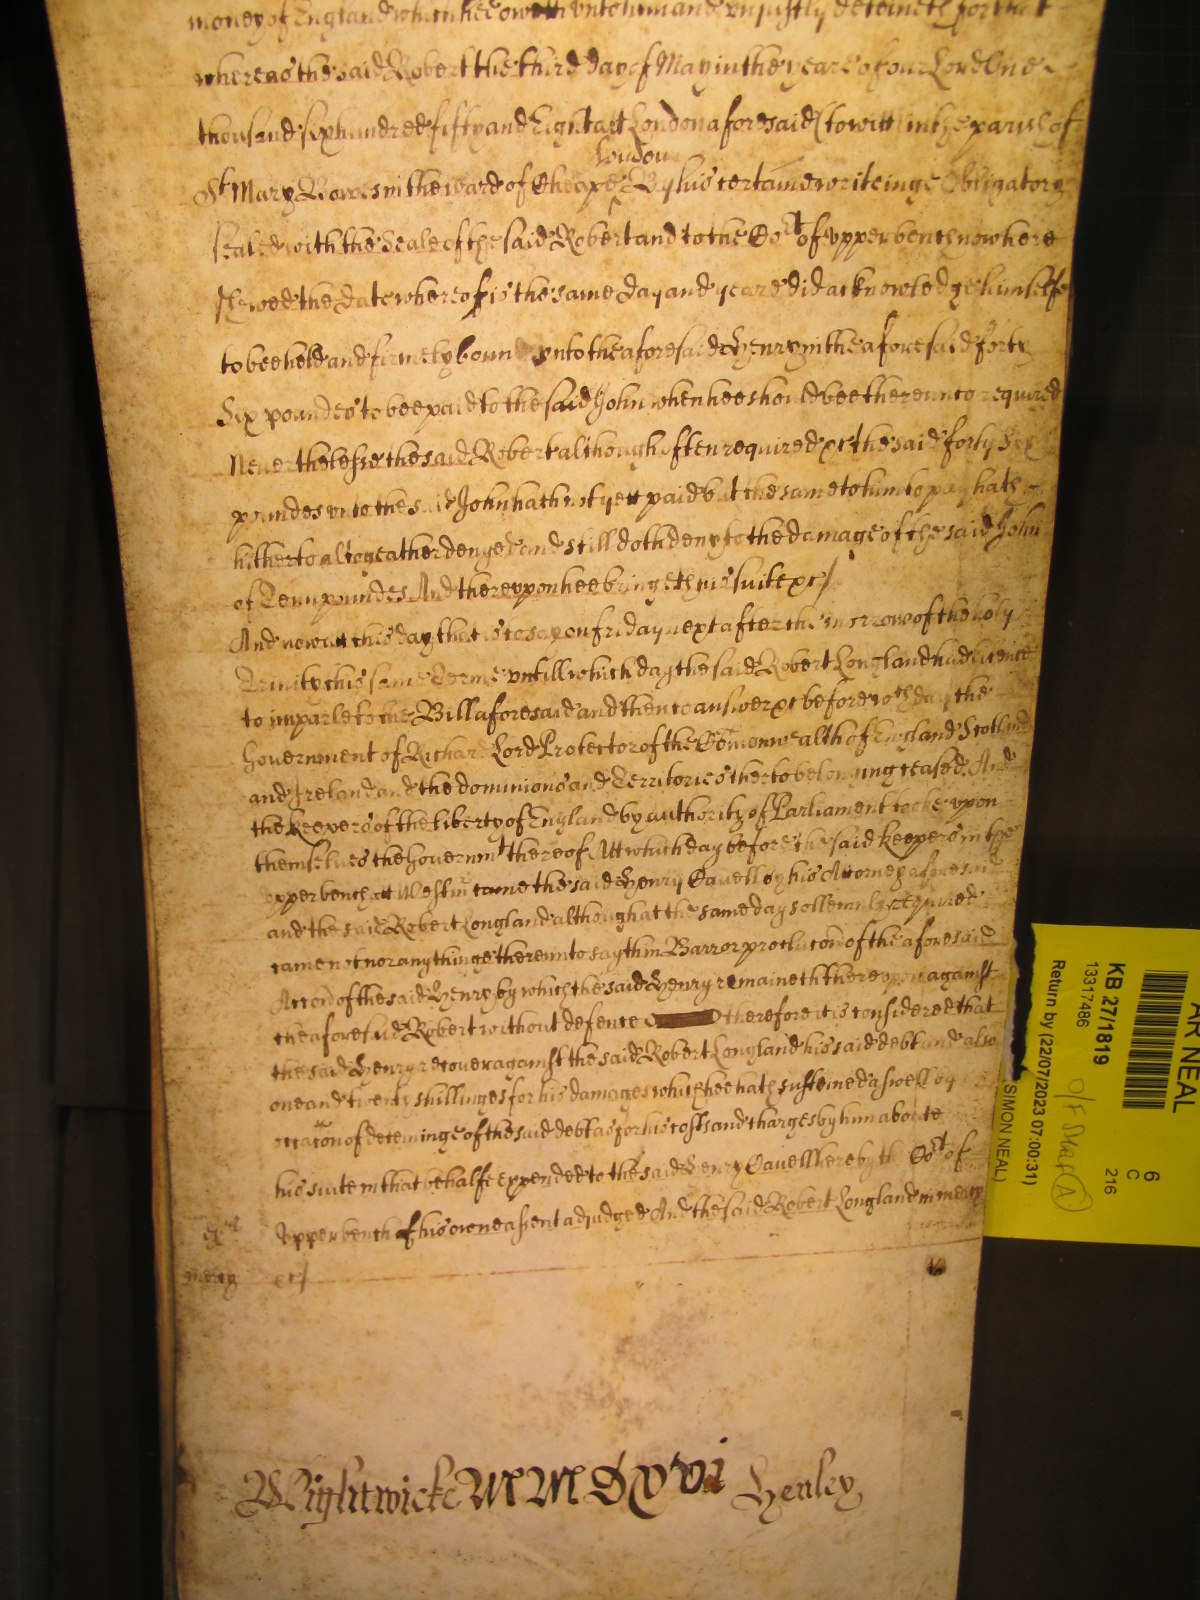 money of England which hee oweth unto him and unjustly deteineth for that
whereas the said Robert the third day of May in the yeare of our Lord One
thousand six hundred fifty and Eight att London aforesaid (to witt) in the parish of
London
St Mary Bowes in the ward of Cheape By his certaine writeinge Obligatory
sealed with the Seale of the said Robert and to the Cort of upper bench now here
shewed the date whereof is the same day and yeare did acknowledge himselfe
to bee held and firmely bound unto the aforesaid Henry in the aforesaid forty
Six poundes to bee paid to the said John when hee should bee thereunto required
Neverthelesse the said Robert although often required &c the said forty Six
poundes unto the said John hath not yett paid but the same to him to pay hath
hitherto altogeather denyed and still doth deny to the damage of the said John
of Tenn poundes And thereupon hee bringeth his suite &c/
And now att this day that is to say on friday next after the morrow of the holy
Trinity this same Terme untill which day the said Robert Longland had licence
to imparle to the Bill aforesaid and then to answer &c before wch day the
Government of Richard Lord Protector of the Comonwealth of England Scotland
and Ireland and the dominions and Territories therto belonging ceased And
the keepers of the liberty of England by authority of Parliament tooke upon
themselves the Governmt thereof Att which day before the said keepers in the
upper bench att Westm came the said Henry Cavell by his Attorney aforesaid
and the said Robert Longland although at the same day sollemnly required
came not nor any thinge thereunto sayth in Barr or preclucon of the aforesaid
Accon of the said Henry by which the said Henry remaineth thereupon against
the aforesaid Robert without defence therefore it is considered that
the said Henry recover against the said Robert Longland his said debt and also
one and twenty shillinges for his damages which hee hath susteined aswell by
occacon of deteininge of the said debt as for his costs and charges by him about
his suite in that behalfe expended to the said Henry Cavell hereby the Cort of
Upper bench of his owne assent adjudged And the said Robert Longland in mercy
mercy &c/
Wightwicke MMDXVI Henley
AR NEAL
KB 27/1819
13317486
Return by (22/07/2023 07:00:31)
SIMON NEAL)
6
C
216
A